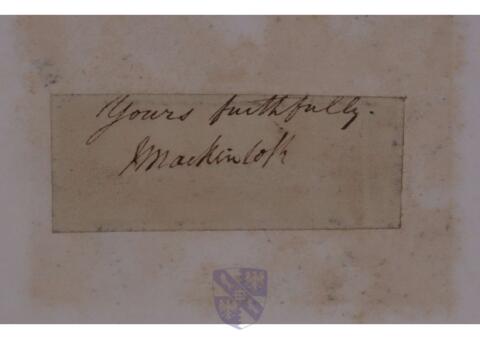 Yours faithfully.
JMackintosh